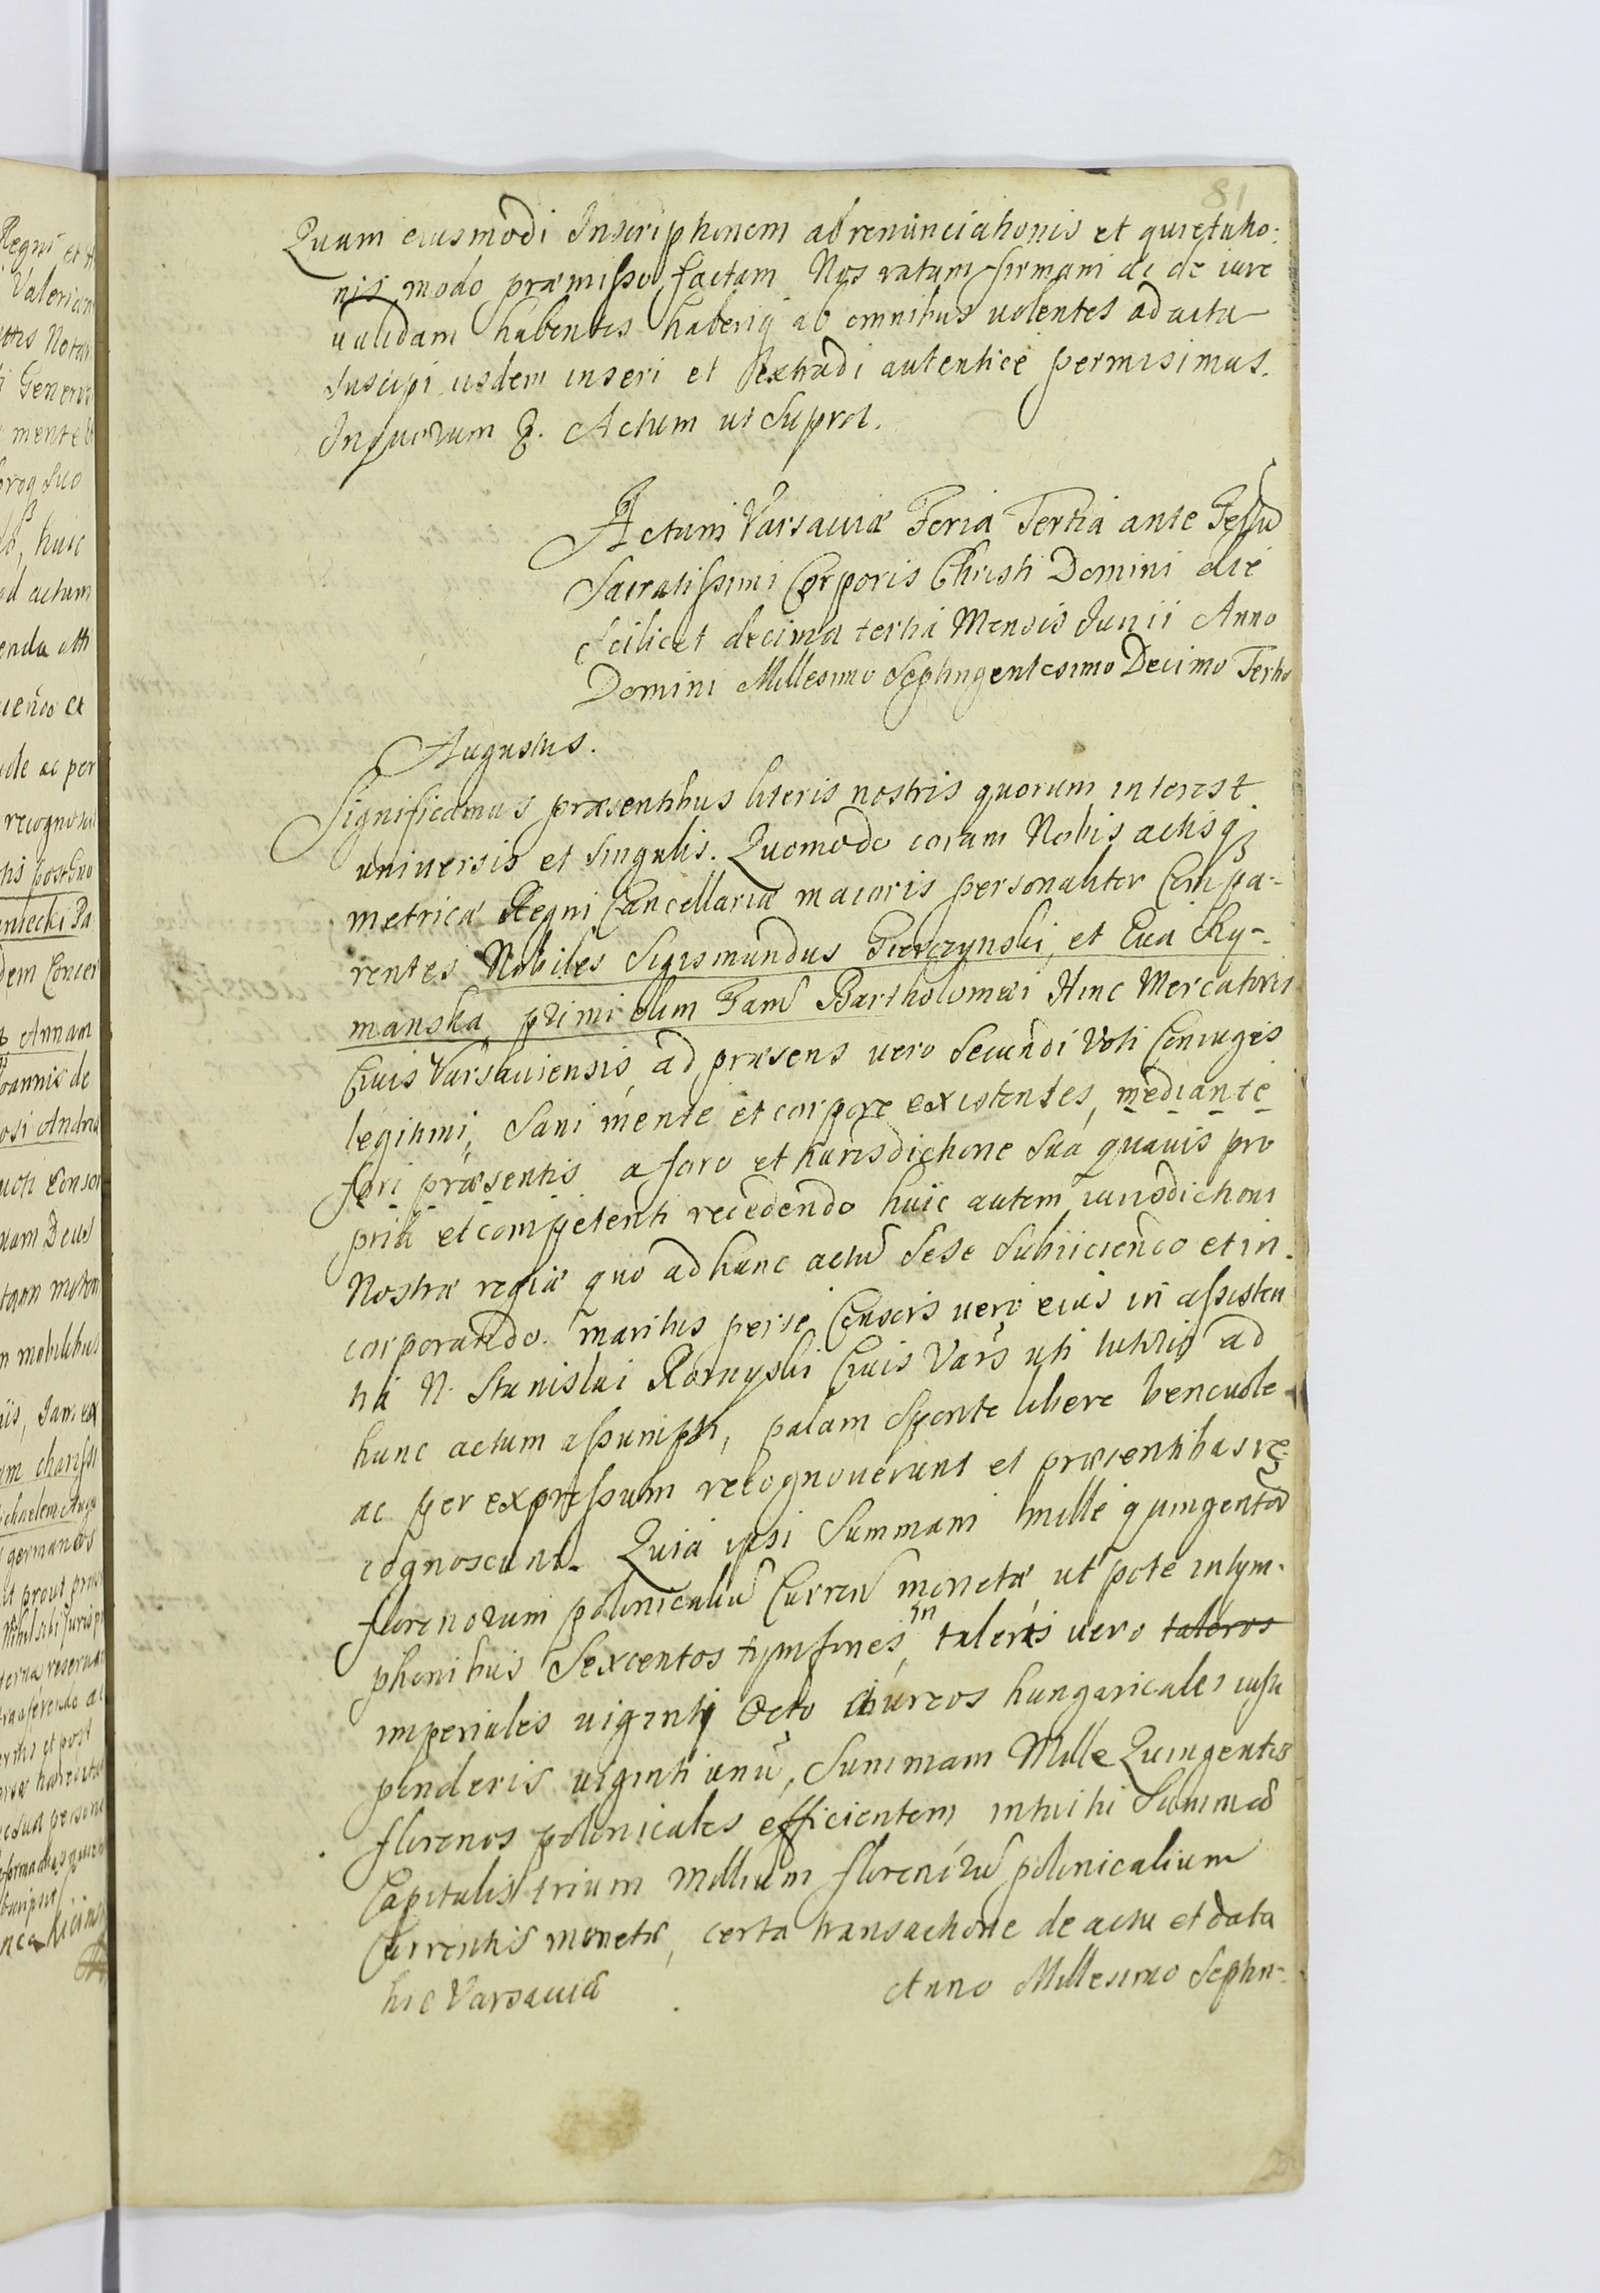 81
Quam eiusmodi Inscriptionem abrenunciationis et quietatio-
nis modo præmisso factam Nos ratam firmam ac de iure
validam habentes haberiq ab omnibus volentes ad acta
suscipi iisdem inseri et extradi autentice permisimus.
In quorum &. Actum ut Supra.
Actum Varsaviæ Feria Tertia ante Festū
Sacratissimi Corporis Christi Domini die
scilicet decima tertia Mensis Junii Anno
Domini Millesimo Septingentesimo Decimo Tertio
Augustus.
Significamus præsentibus literis nostris quorum interest
universis et singulis. Quomodo coram Nobis actisq
metricæ Regni Cancellariæ maioris personaliter Compa-
rentes Nobiles Sigismundus Gierczynski, et Eva Ry-
manska primi olim Fam Bartholomæi Hinc Mercatoris
Civis Varsaviensis ad præsens vero Secundi Voti Coniuges
legitimi, Sani mente et corpore existentes, mediante
fori præsentis a foro et iurisdictione sua quavis pro
pria et competenti recedendo huic autem iurisdictioni
Nostræ regiæ quo ad hunc actū sese subiiciendo et in-
corporando. maritus per se Consors vero eius in assisten
tia N. Stanislai Rornyski Civis Vars uti tutoris ad
hunc actum assumpti, palam sponte libere benevole
ac per expressum recognoverunt et præsentibus re-
cognoscunt. Quia ipsi Summam mille quingentorū
florenorum polonicaliū Curren monetæ ut pote in tym-
phonibus Sexcentos tymfones, in taleris vero taleros
imperiales viginti Octo Aureos hungaricales iusti
ponderis viginti unū, Summam Mille Quingentos
florenos polonicales efficientem intuitu Summæ
Capitalis trium Millium florenorū polonicalium
Currentis monetæ, certa transactione de actu et data
hic Varsaviæ Anno Millesimo Septin-